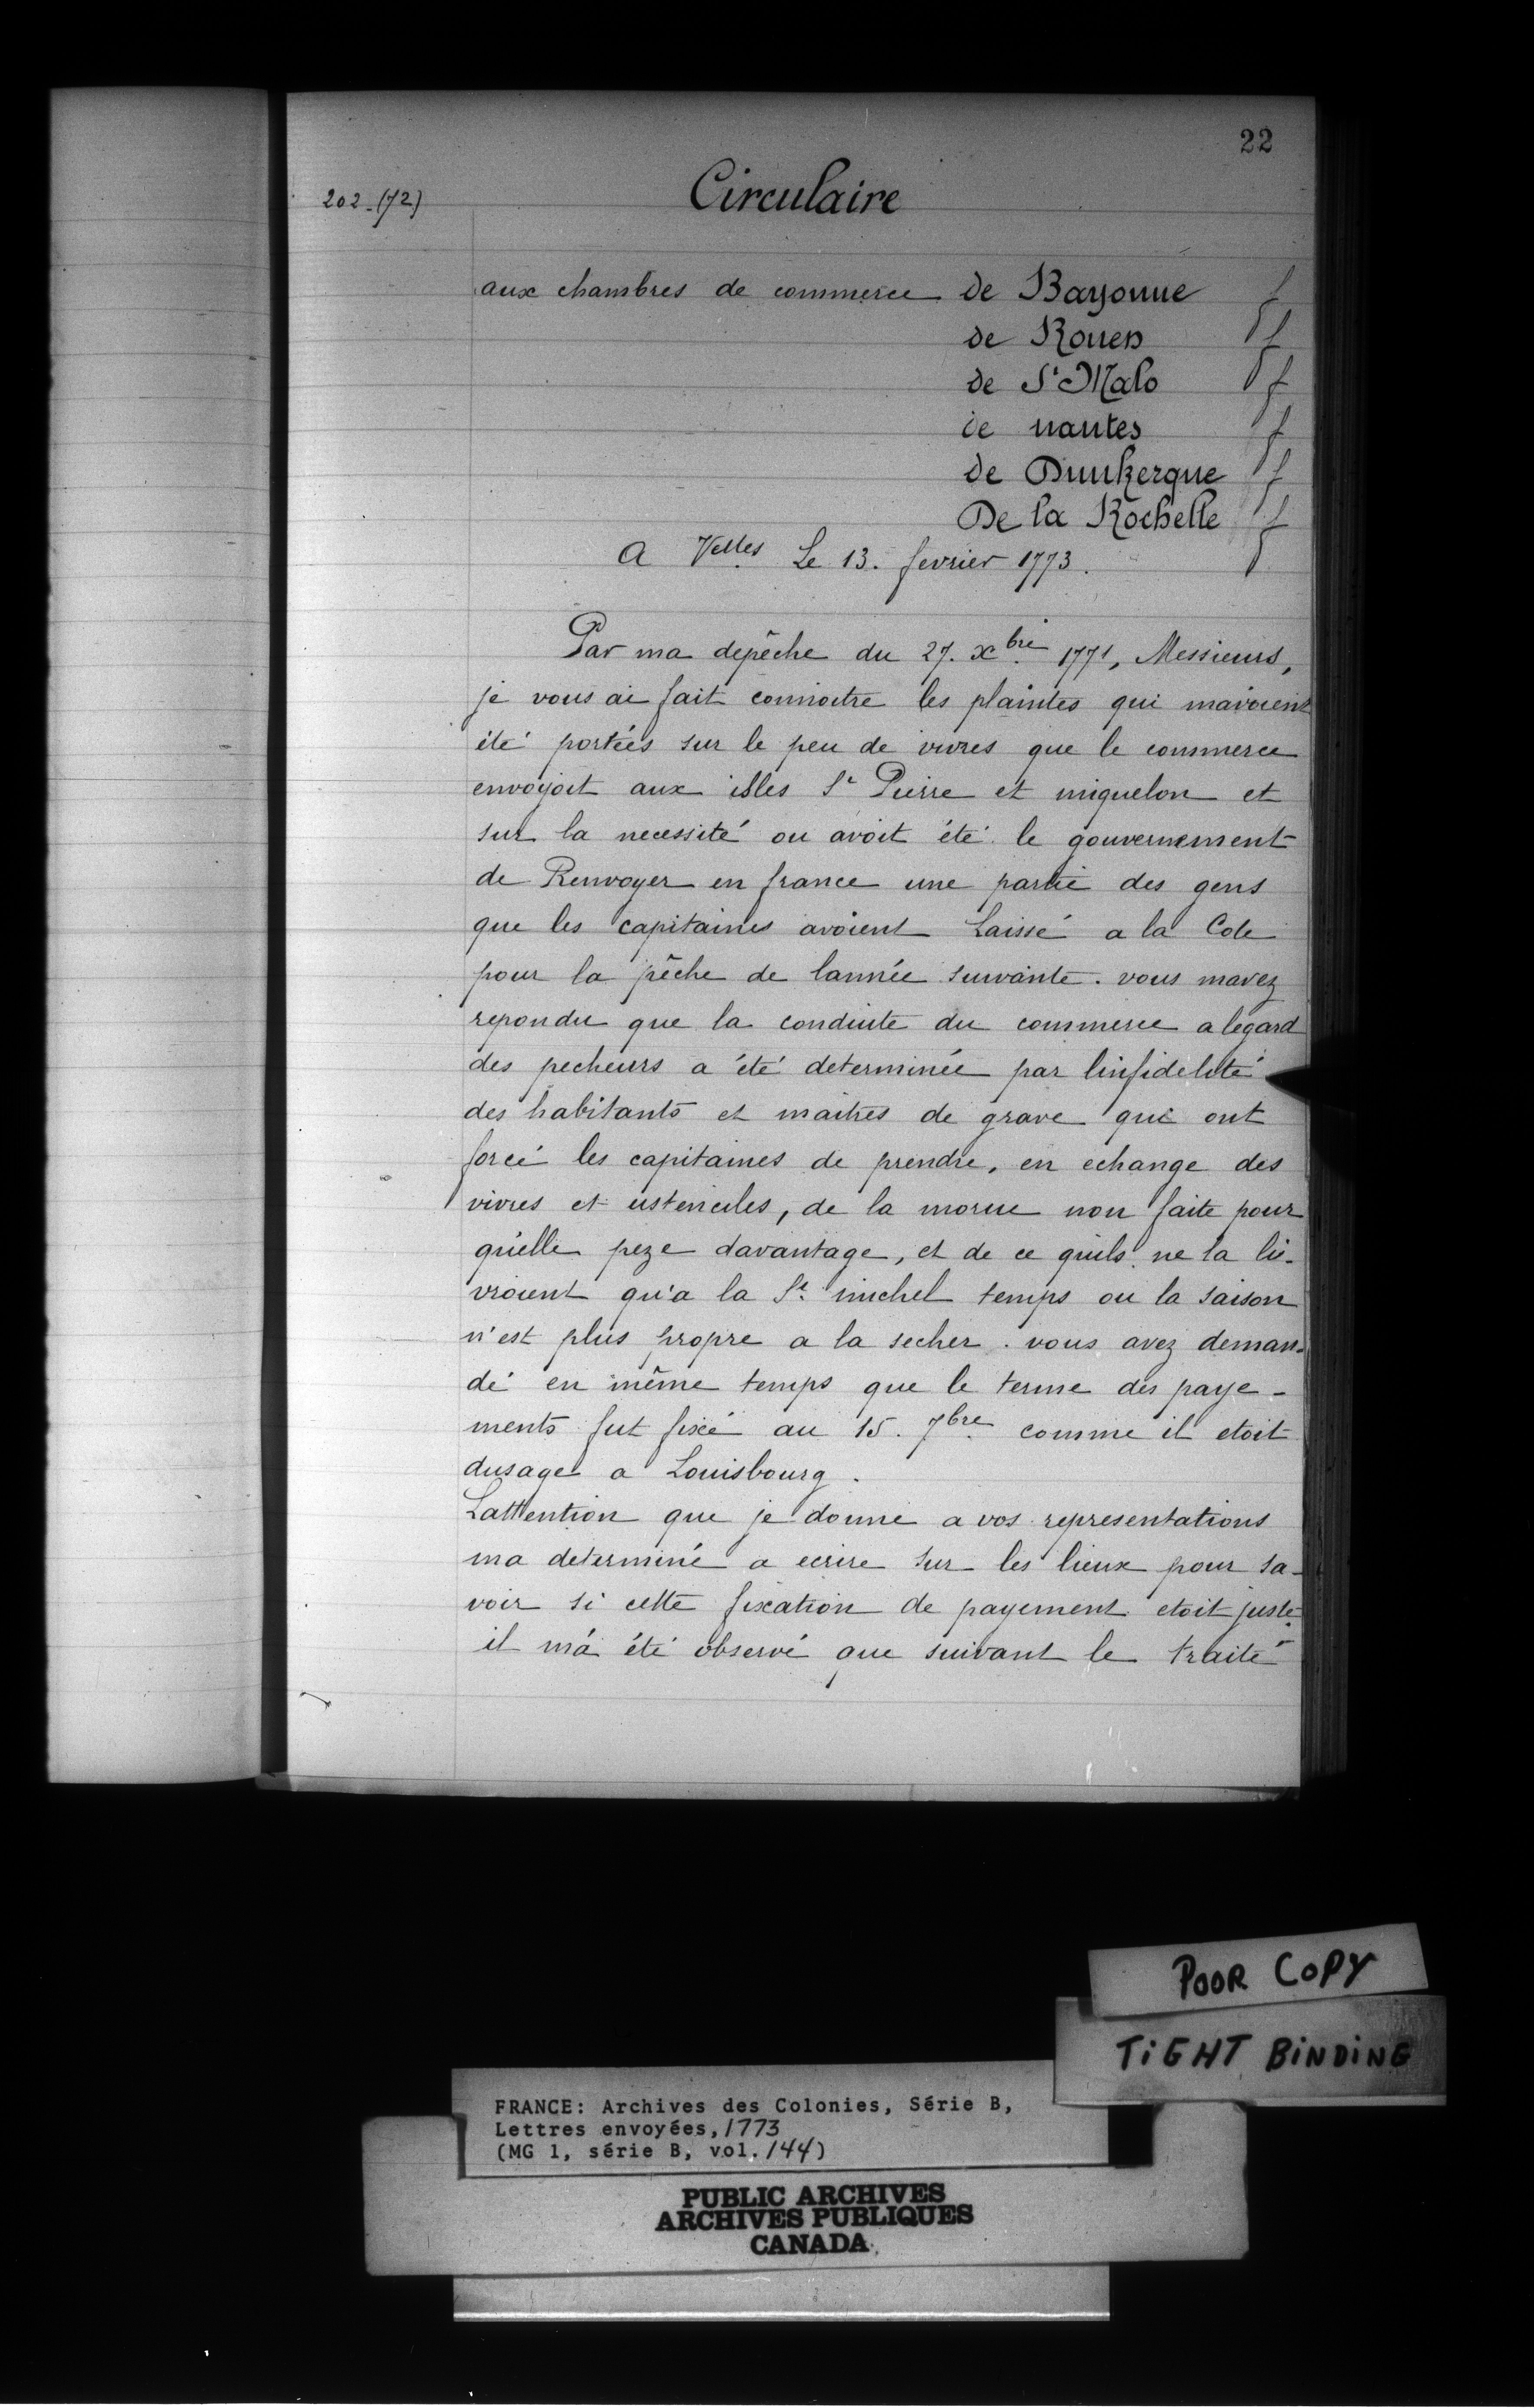 22
202-(72)
Circulaire
aux chambres de commerce de Bayonne
de Rouen
de St Malo
de nantes
de Dunkerque
De la Rochelle
A Velles Le 13. fevrier 1773.
Par ma depêche du 27. xbre 1771, Messieurs,
je vous ai fait connoitre les plaintes qui mavoient
été portées sur le peu de vivres que le commerce
envoyoit aux isles St Pierre et miquelon et
sur la necessité ou avoit été le gouvernement
de Renvoyer en france une partie des gens
que les capitaines avoient Laissé a la Cote
pour la pêche de lannée suivante. vous mavez
repondu que la conduite du commerce a legard
des pecheurs a été determinée par linfidelité
des habitants et maitres de grave qui ont
forcé les capitaines de prendre, en echange des
vivres et ustenciles, de la morue non faite pour
qu'elle peze davantage, et de ce quils ne la li-
vroient qu'a la St. michel temps ou la saison
n'est plus propre a la secher. vous avez deman-
dé en même temps que le terme des paye-
ments fut fixé au 15. 7bre comme il etoit
dusage a Louisbourg.
Lattention que je donne a vos representations
ma determiné a ecrire sur les lieux pour sa-
voir si cette fixation de payement etoit juste
il m'a été observé que suivant le traité
POOR COPY
TIGHT BINDING
FRANCE: Archives des Colonies, Série B,
Lettres envoyées, 1773
(MG 1, série B, vol. 144)
PUBLIC ARCHIVES
ARCHIVES PUBLIQUES
CANADA